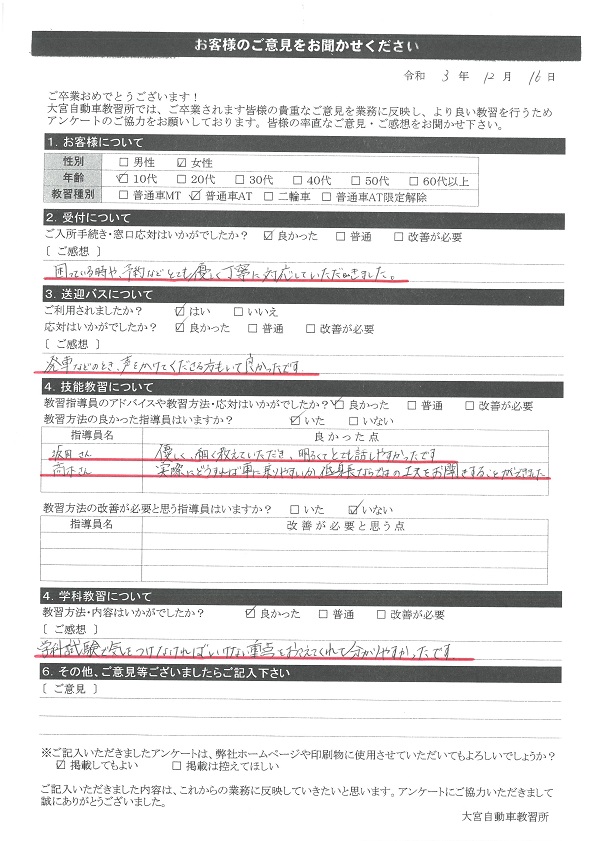 お客様のご意見をお聞かせください
令和 3 年 12 月 16 日
ご卒業おめでとうございます！
大宮自動車教習所では、ご卒業されます皆様の貴重なご意見を業務に反映し、より良い教習を行うため
アンケートのご協力をお願いしております。皆様の率直なご意見・ご感想をお聞かせ下さい。
1. お客様について
性別 □ 男性 ☑ 女性
年齢 ☑ 10代 □ 20代 □ 30代 □ 40代 □ 50代 □ 60代以上
教習種別 □ 普通車MT ☑ 普通車AT □ 二輪車 □ 普通車AT限定解除
2. 受付について
ご入所手続き・窓口応対はいかがでしたか？ ☑ 良かった □ 普通 □ 改善が必要
[ ご感想 ]
困っている時や、予約などとても優しく丁寧に対応していただきました。
3. 送迎バスについて
ご利用されましたか？ ☑ はい □ いいえ
応対はいかがでしたか？ ☑ 良かった □ 普通 □ 改善が必要
[ ご感想 ]
発車などのとき、声をかけてくださる方もいて良かったです
4. 技能教習について
教習指導員のアドバイスや教習方法・応対はいかがでしたか？ ☑ 良かった □ 普通 □ 改善が必要
教習方法の良かった指導員はいますか？ ☑ いた □ いない
指導員名 良かった点
さん 優しく、細く教えていただき、明るくてとても話しやすかったです
さん 実際にどうすれば車に乗りやすいか低身長ならではの工夫をお聞きすることができました
教習方法の改善が必要と思う指導員はいますか？ □ いた ☑ いない
指導員名 改善が必要と思う点
4. 学科教習について
教習方法・内容はいかがでしたか？ ☑ 良かった □ 普通 □ 改善が必要
[ ご感想 ]
学科試験で気をつけなければいけない重点をおさえてくれて分かりやすかったです
6. その他、ご意見等ございましたらご記入下さい
[ ご意見 ]
※ご記入いただきましたアンケートは、弊社ホームページや印刷物に使用させていただいてもよろしいでしょうか？
☑ 掲載してもよい □ 掲載は控えてほしい
ご記入いただきました内容は、これからの業務に反映していきたいと思います。アンケートにご協力いただきまして
誠にありがとうございました。
大宮自動車教習所